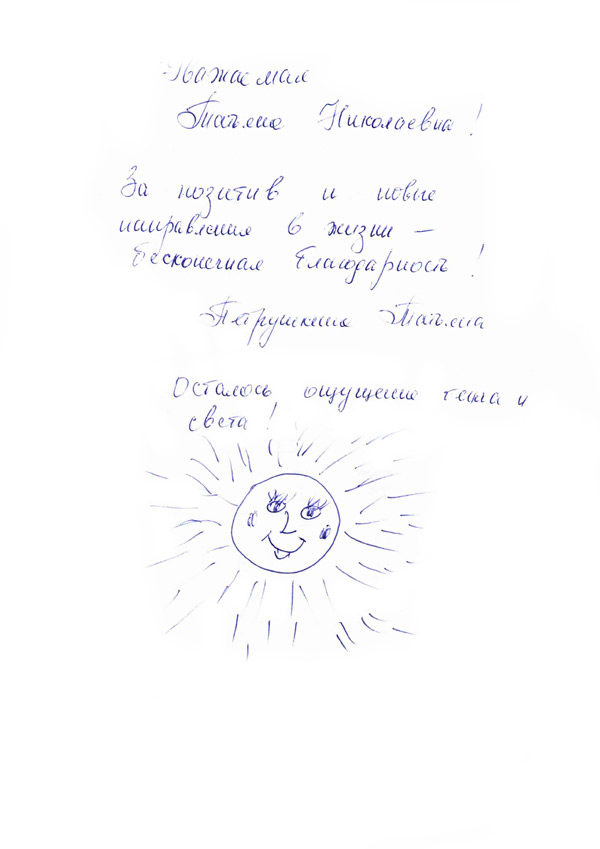 Уважаемая
Татьяна Николаевна!
За позитив и новые
направления в жизни –
бесконечная благодарность!
Петрушкина Татьяна
Осталось ощущение тепла и
света!